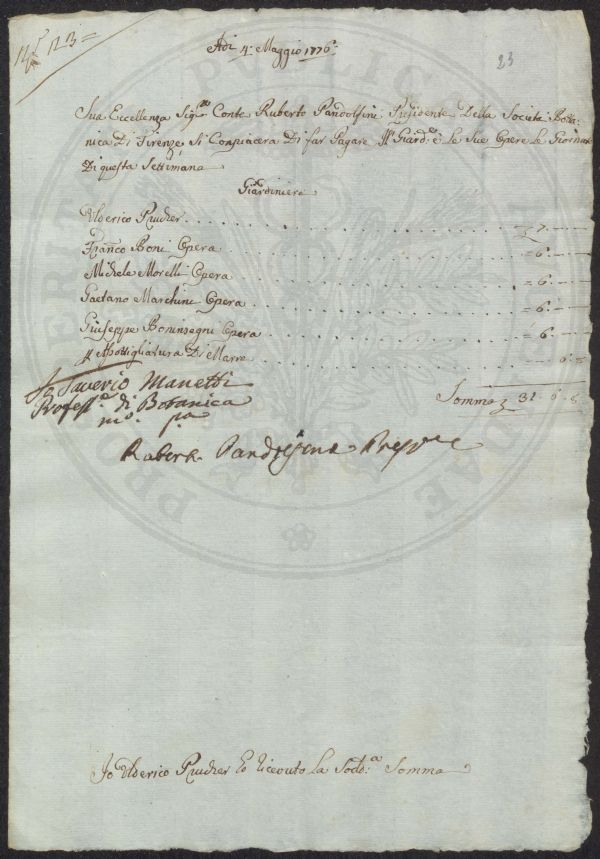 N.º 123=
23
Adi 4: Maggio 1776:
Sua Eccellenza Sig.re Conte Ruberto Pandolfini Presidente Della Società Bota:
nica Di Firenze, Si Conpiacera Di far Pagare Il Giard.e e le Sue Opere le Giornate
Di questa Settimana
Giardiniere
Ulderico Prucher
Franco Boni Opera = 6. —
Michele Morelli Opera = 6. —
Gaetano Marchini Opera = 6. —
Giuseppe Boninsegni Opera = 6. —
Di Marre
Io Saverio Manetti
Profess.e di Botanica
m.o p.a
Somma 31
Ruberto Pandolfini Pres.te
Io Ulderico Prucher ho riceuto la Sod.a Somma
PRO PUBLICA